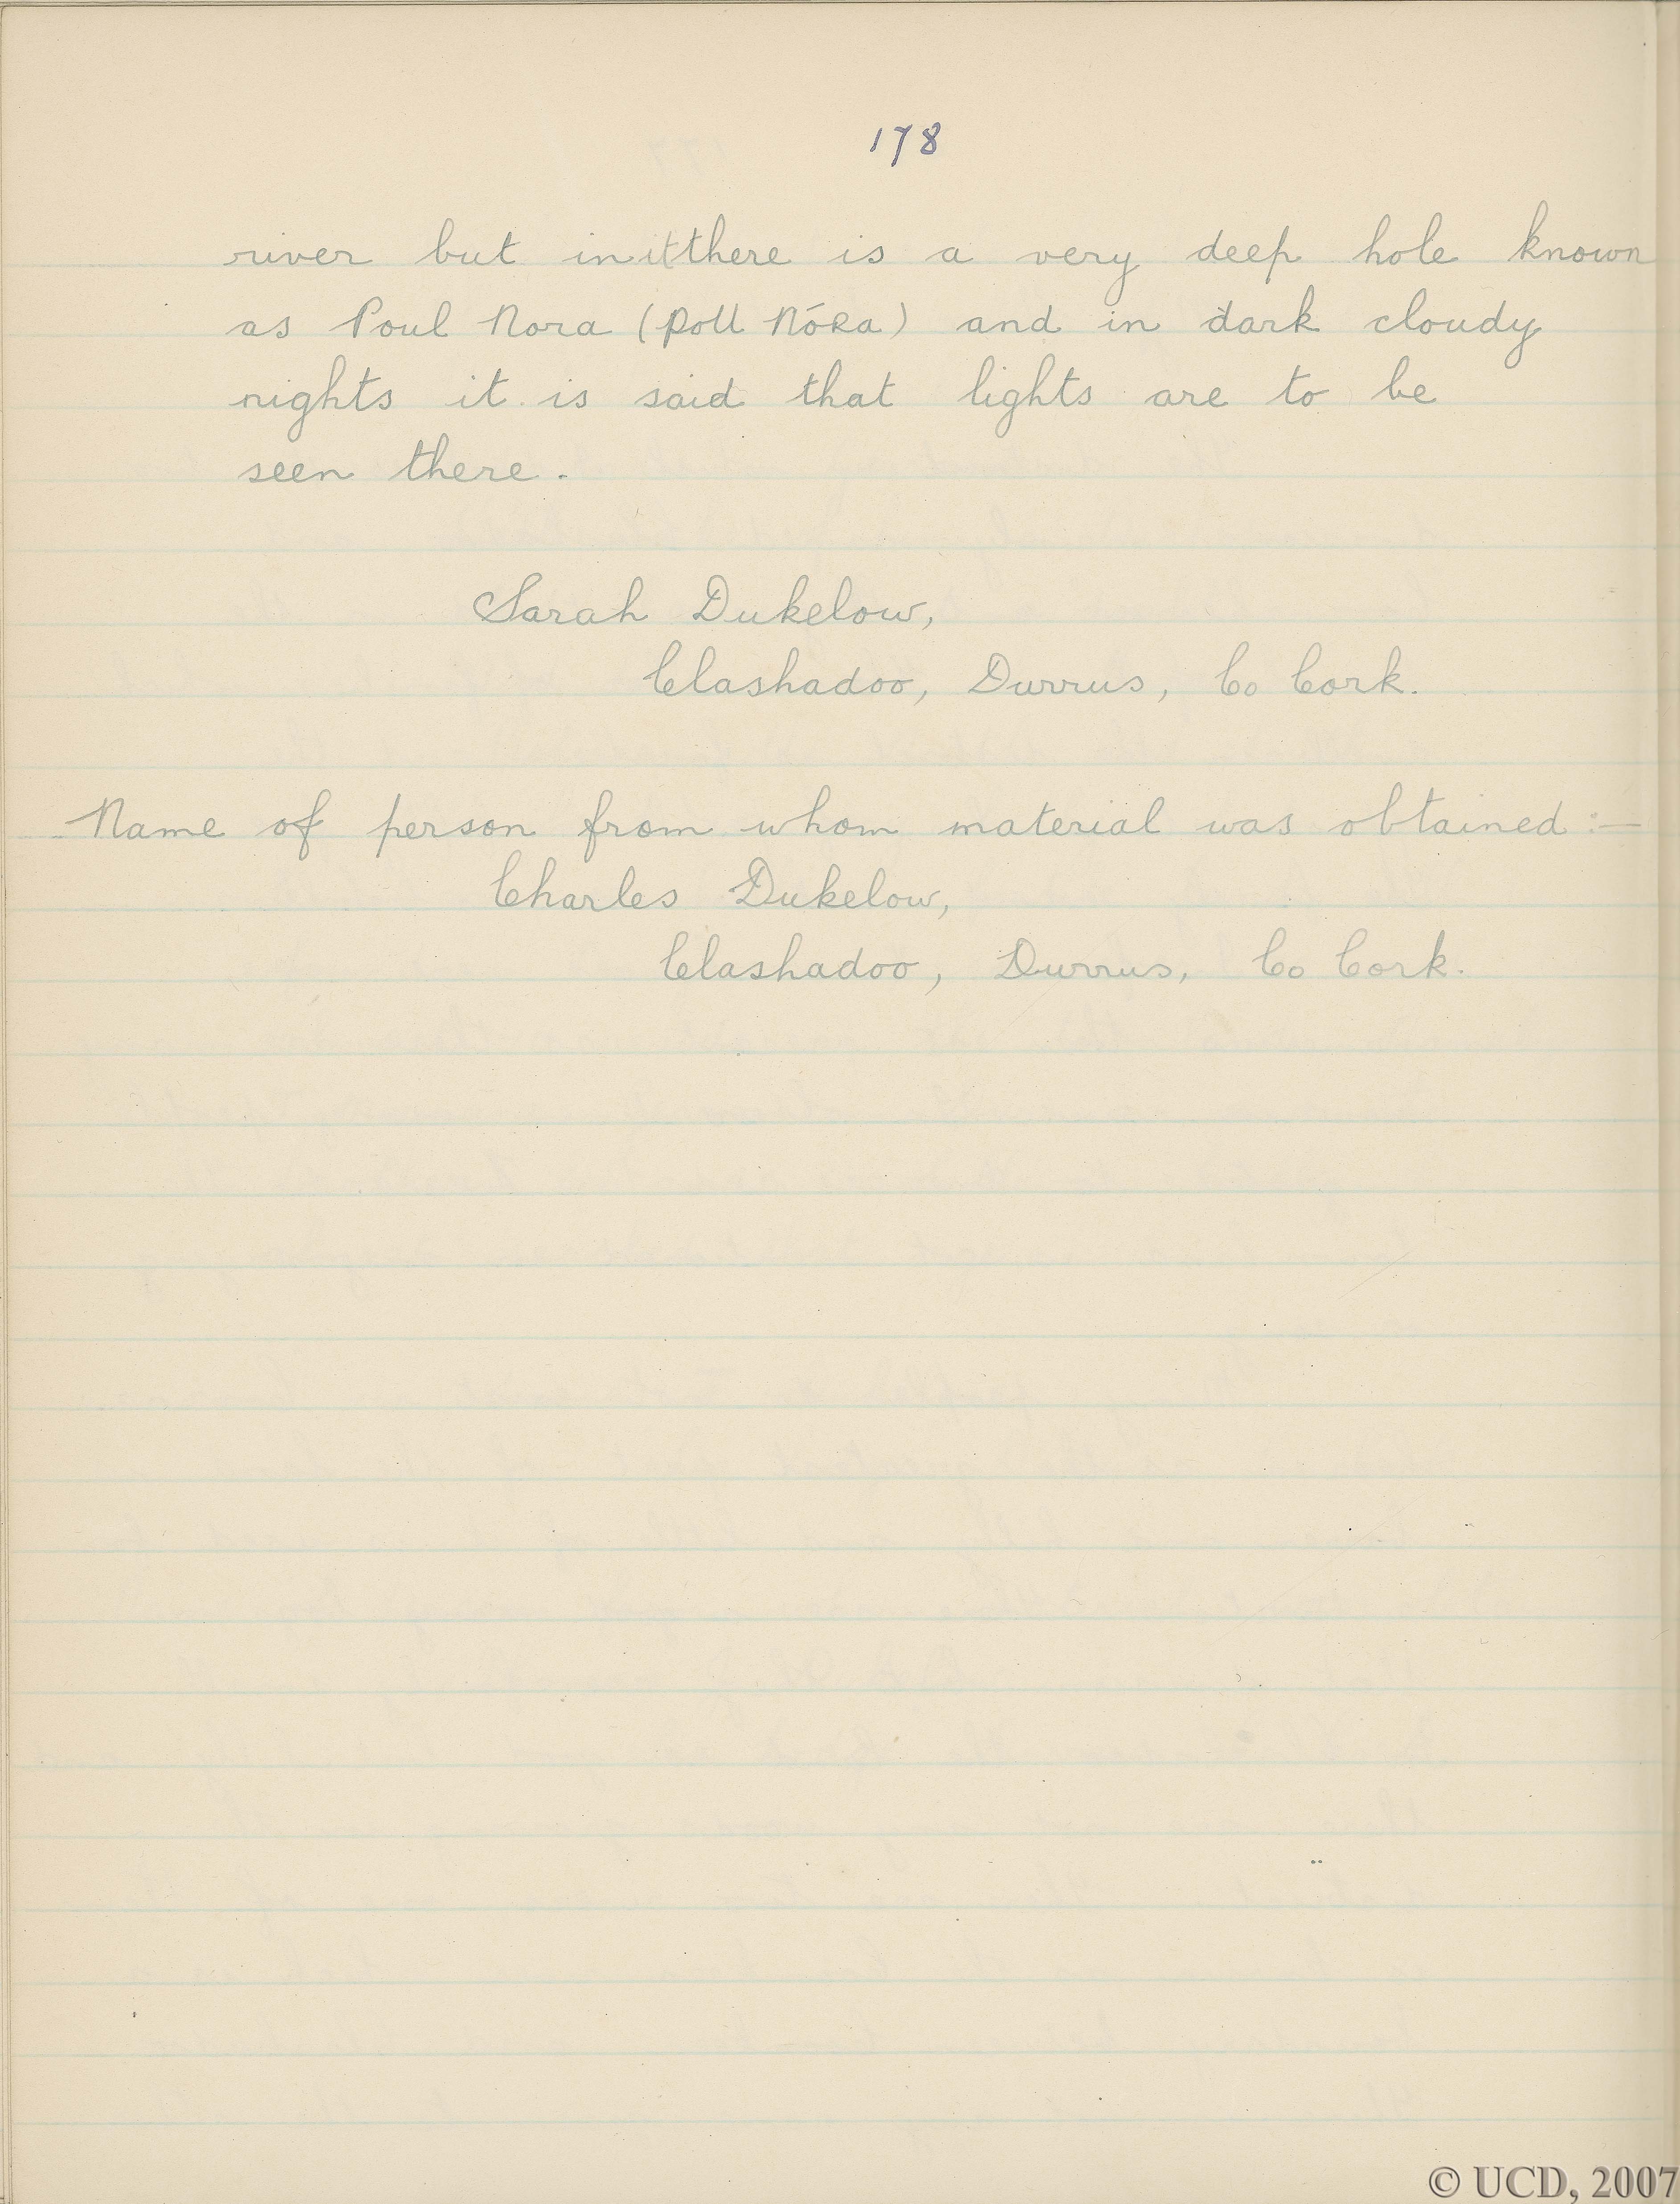 178
river but in it there is a very deep hole known
as Poul Nora (Poll Nóra) and in dark cloudy
nights it is said that lights are to be
seen there.
Sarah Dukelow,
Clashadoo, Durrus, Co Cork.
Name of person from whom material was obtained :-
Charles Dukelow,
Clashadoo, Durrus, Co Cork.
© UCD, 2007